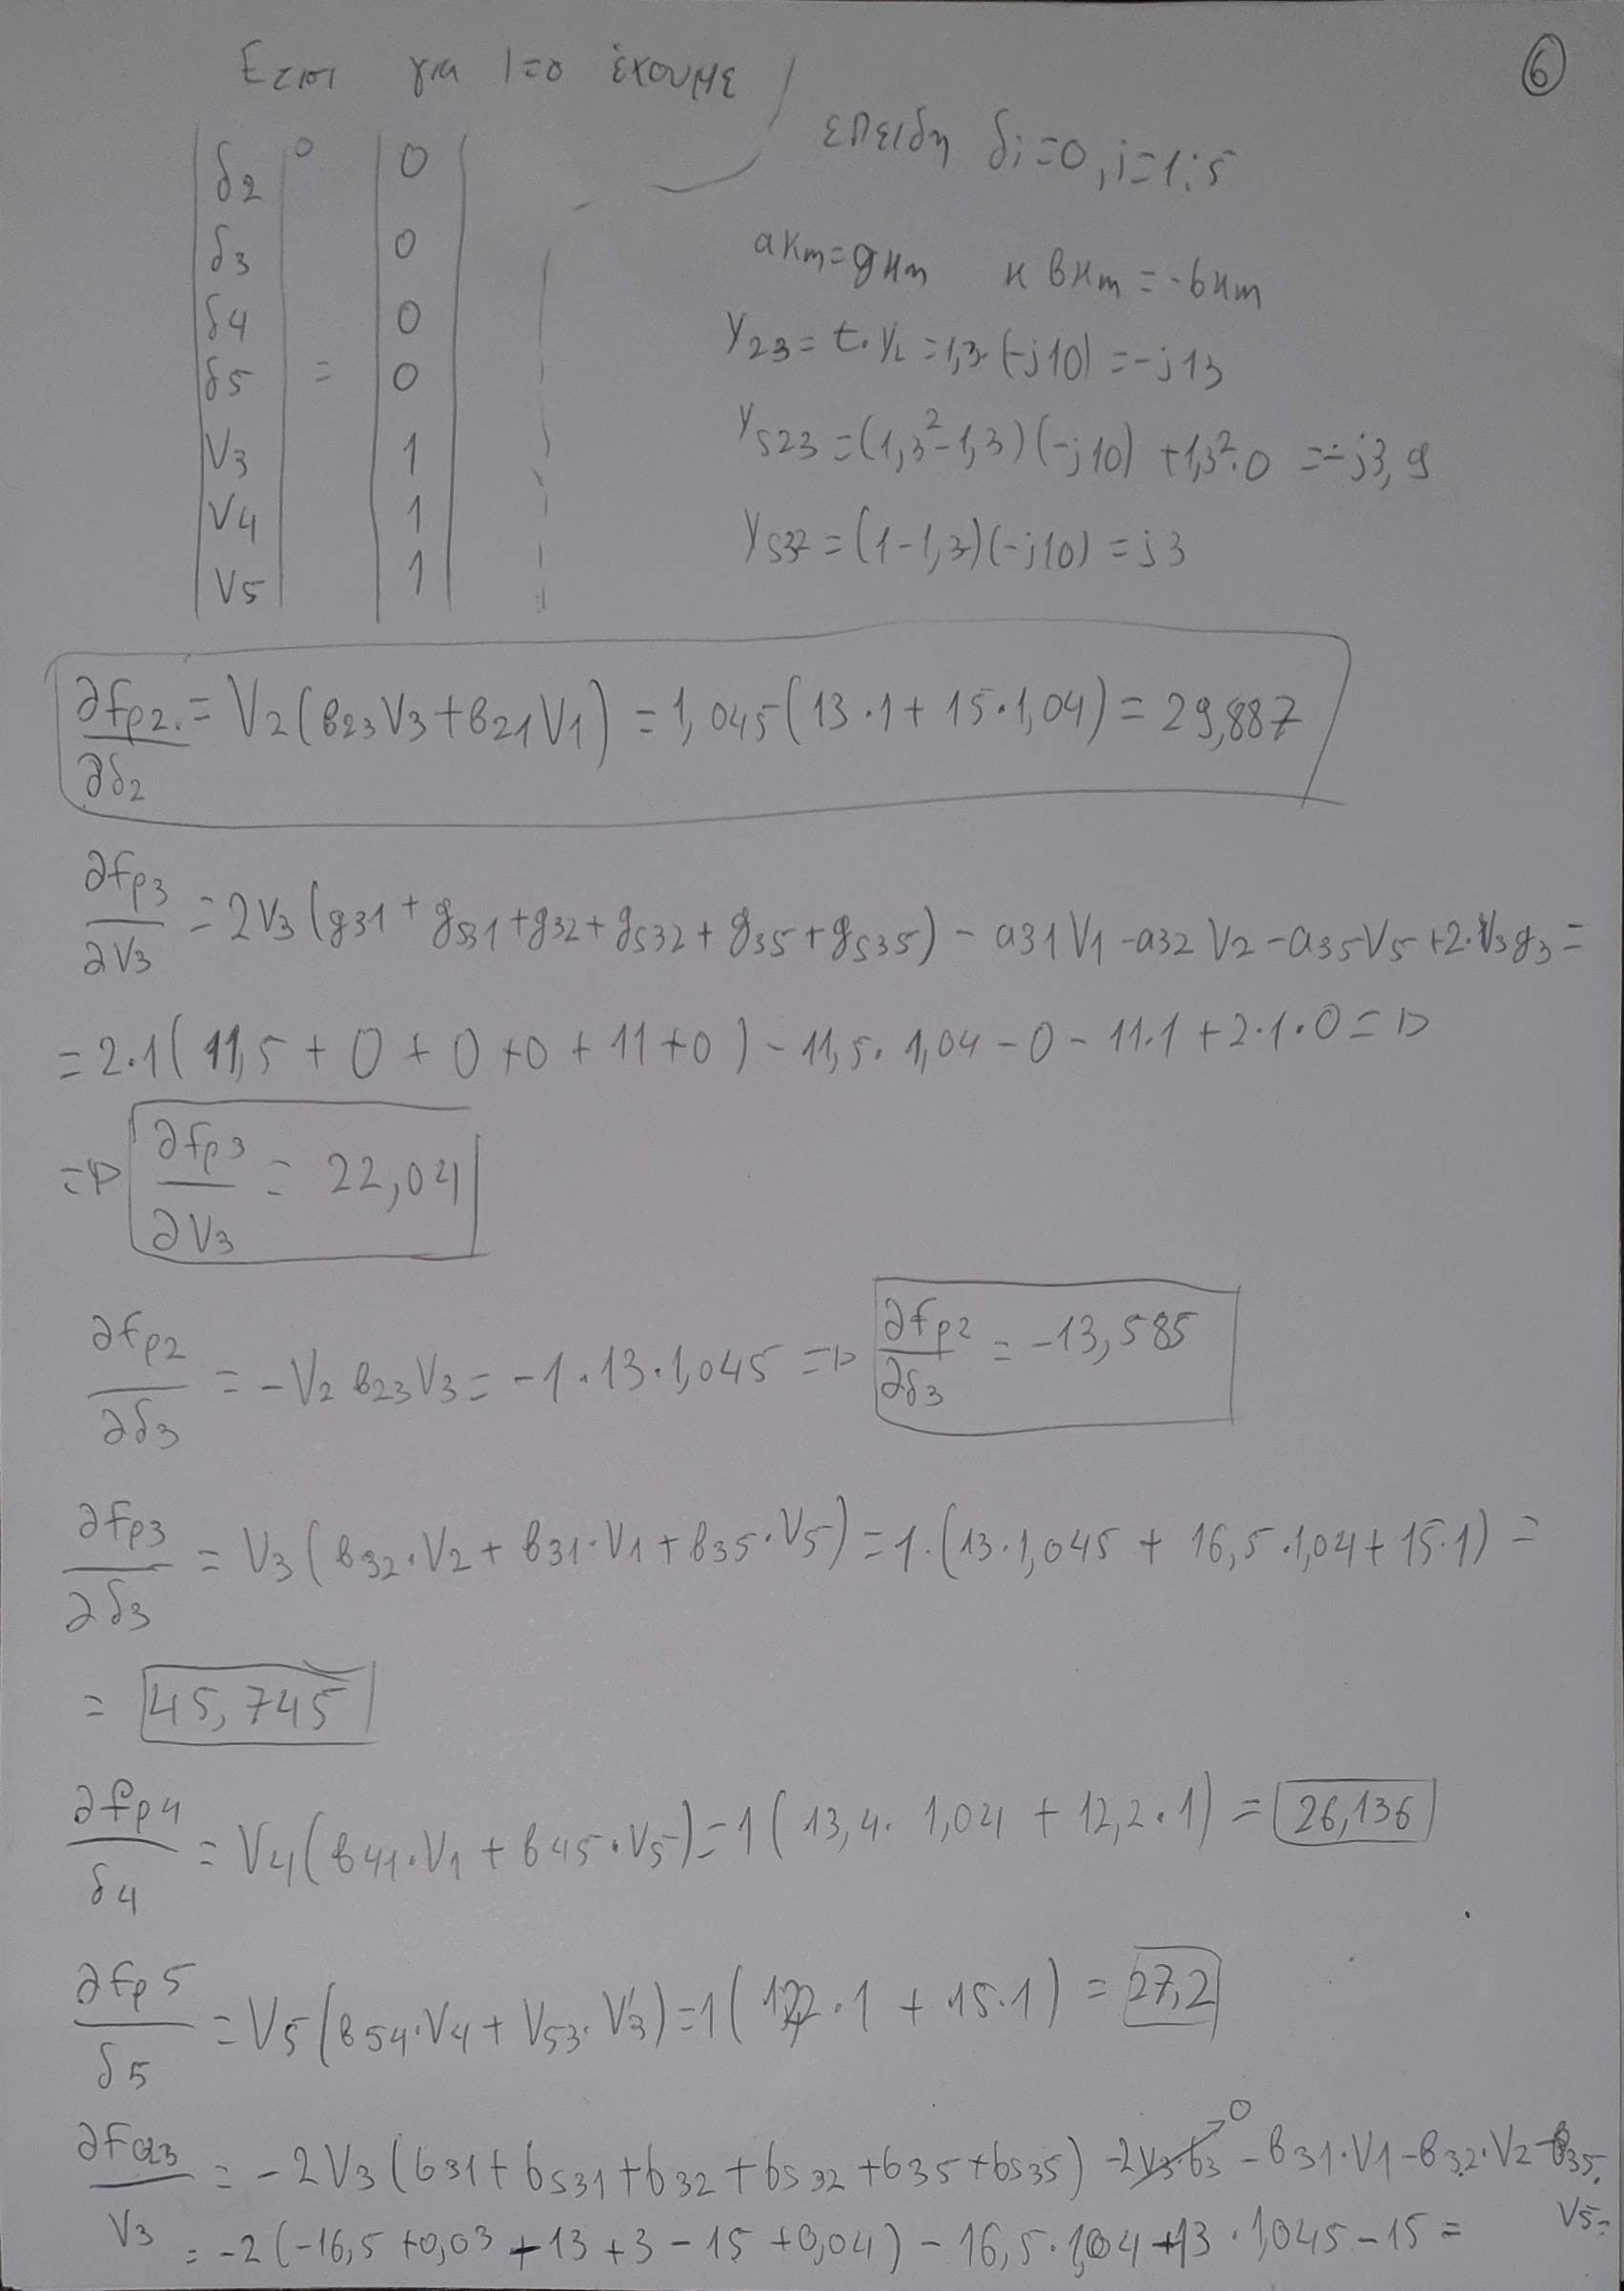 Ετσι για l=0 έχουμε
⑥
επειδη δi=0, i=1:5
|δ2|⁰ |0|
|δ3| |0|
|δ4| |0|
|δ5| = |0|
|V3| |1|
|V4| |1|
|V5| |1|
aκm=gκm κ βκm=-bκm
Y23=t·YL=1,3·(-j10)=-j13
Ys23=(1,3²-1,3)(-j10)+1,3²·0=-j3,9
Ys32=(1-1,3)(-j10)=j3
∂fp2/∂δ2 = V2(β23V3+β21V1)=1,045(13·1+15·1,04)=29,887
∂fp3/∂V3 = 2V3(g31+gs31+g32+gs32+g35+gs35)-a31V1-a32V2-a35V5+2·V3g3=
=2·1(11,5+0+0+0+11+0)-11,5·1,04-0-11·1+2·1·0=>
=> ∂fp3/∂V3 = 22,04
∂fp2/∂δ3 = -V2β23V3=-1·13·1,045 => ∂fp2/∂δ3 = -13,585
∂fp3/∂δ3 = V3(β32·V2+β31·V1+β35·V5)=1·(13·1,045+16,5·1,04+15·1)=
= 45,745
∂fp4/δ4 = V4(β41·V1+β45·V5)=1(13,4·1,04+12,2·1)=26,136
∂fp5/δ5 = V5(β54·V4+V53·V3)=1(12,2·1+15·1)=27,2
∂fQ3/V3 = -2V3(b31+bs31+b32+bs32+b35+bs35)-2V3·b3→0-β31·V1-β32·V2-β35·V5=
=-2(-16,5+0,03+13+3-15+0,04)-16,5·1,04+13·1,045-15=